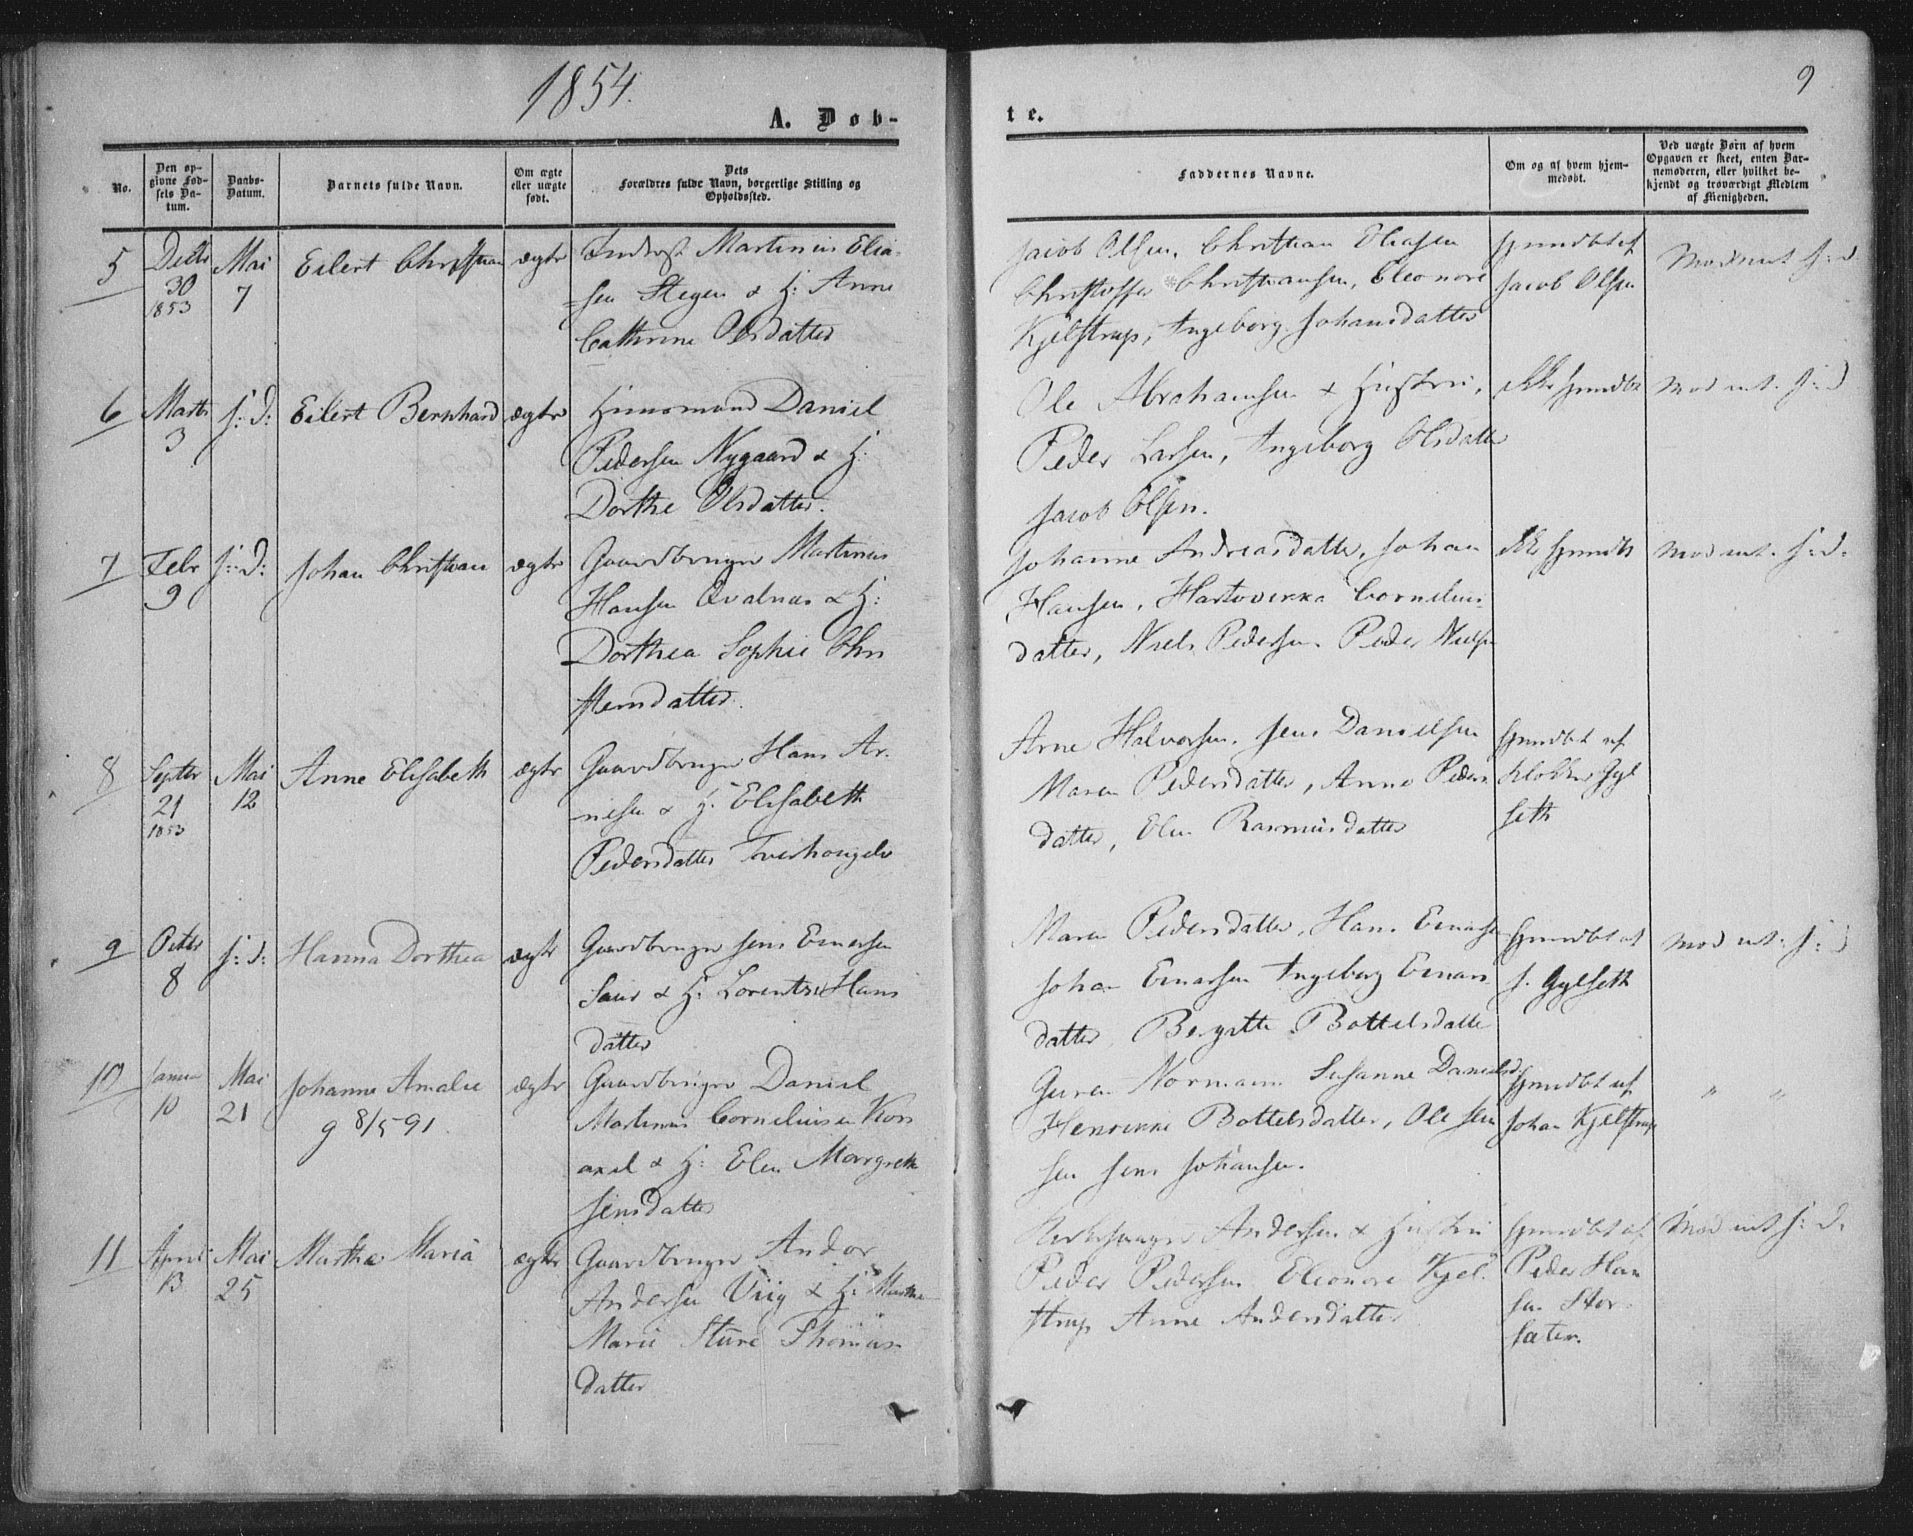 1854.
9
A. Døb-
te.
No.
Den op-
givne Fød-
sels Da-
tum.
Daabs-
Datum.
Barnets fulde Navn.
Om ægte
eller uægte
født.
Dets
Forældres fulde Navn, borgerlige Stilling og
Opholdssted.
Faddernes Navne.
Om og af hvem hjem-
medøbt.
Ved uægte Børn af hvem
Opgaven er skeet, enten Bar-
nemoderen, eller hvilket be-
kjendt og troværdigt Medlem
af Menigheden.
5
30
1853
Mai
7
Eilert Christian
ægte
Inderst Martinus Elia-
sen Stegen & H: Anne
Cathrine Olsdatter
Jacob Olsen, Christian Eliasen
Christoffer Christiansen, Eleonore
Kjelstrup, Ingeborg Johansdatter
hjemdøbt af
Jacob Olsen
6
Marts
3
s: d:
Eilert Bernhard
ægte
Huusmand Daniel
Pedersen Nygaard & H:
Dorthe Olsdatter.
Ole Abrahamsen & Hustru,
Peder Larsen, Ingeborg Olsdatter
Jacob Olsen.
ikke hjemdbt
7
Febr
9
s: d:
Johan Christian
ægte
Gaardbruger Martinus
Hansen Qvalnæs & H:
Dorthea Sophie Chri
stensdatter.
Johanne Andreasdatter, Johan
Hansen, Hartvikka Cornelius-
datter, Niels Pedersen Peder Nielsen
ikke hjemdbt
8
Septer
21
1853
Mai
12
Anne Elisabeth
ægte
Gaardbruger Hans Ar-
nesen & H: Elisabeth
Pedersdatter
Arne Halvorsen, Jens Danielsen
Maren Pedersdatter, Anne Peders
datter, Elen Rasmusdatter
hjemdbt af
Klokker Gyl
seth
9
Octbr
8
s: d:
Hanna Dorthea
ægte
Gaardbruger Jens Enersen
Saur & H: Lorentze Hans
datter
Maren Pedersdatter, Hans Enersen
Johan Enersen Ingeborg Eners
datter, Beritte Bottelsdatter
hjemdbt af
J. Gylseth
10
10
Mai
21
Johanne Amalie
g 8/5 91.
ægte
Gaardbruger Daniel
Martinus Corneliusen Kors
& H: Elen Margrethe
Jensdatter
Normann Susanne Danielsd
Henrikke Bottelsdatter, Ole Jen
sen Jens Johansen.
hjemdbt af
Johan Kjelstrup
" "
11
April
13
Mai
25
Martha Maria
ægte
Gaardbruger Andor
Andersen Viig & H: Martha
Marie Sture Thomas
datter
Kirkesanger Andersen & Hustru
Peder Pedersen Eleonore Kjel-
strup Anne Andersdatter
hjemdbt af
Peder Han
sen Stor-
sæter.